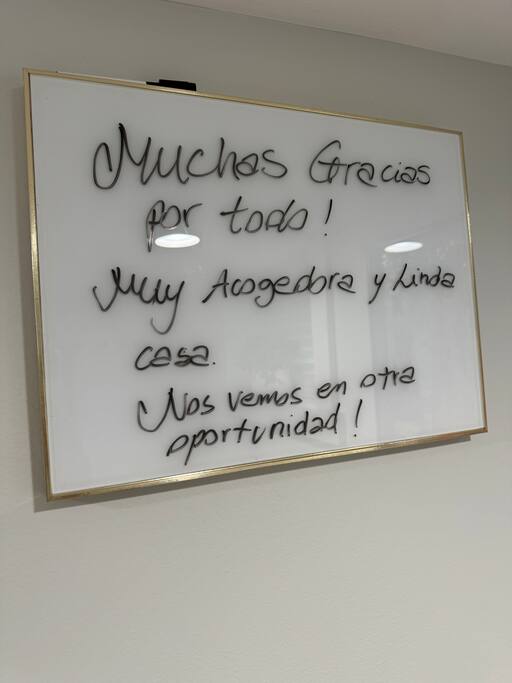 Muchas Gracias
por todo!
Muy Acogedora y Linda
casa.
Nos vemos en otra
oportunidad!